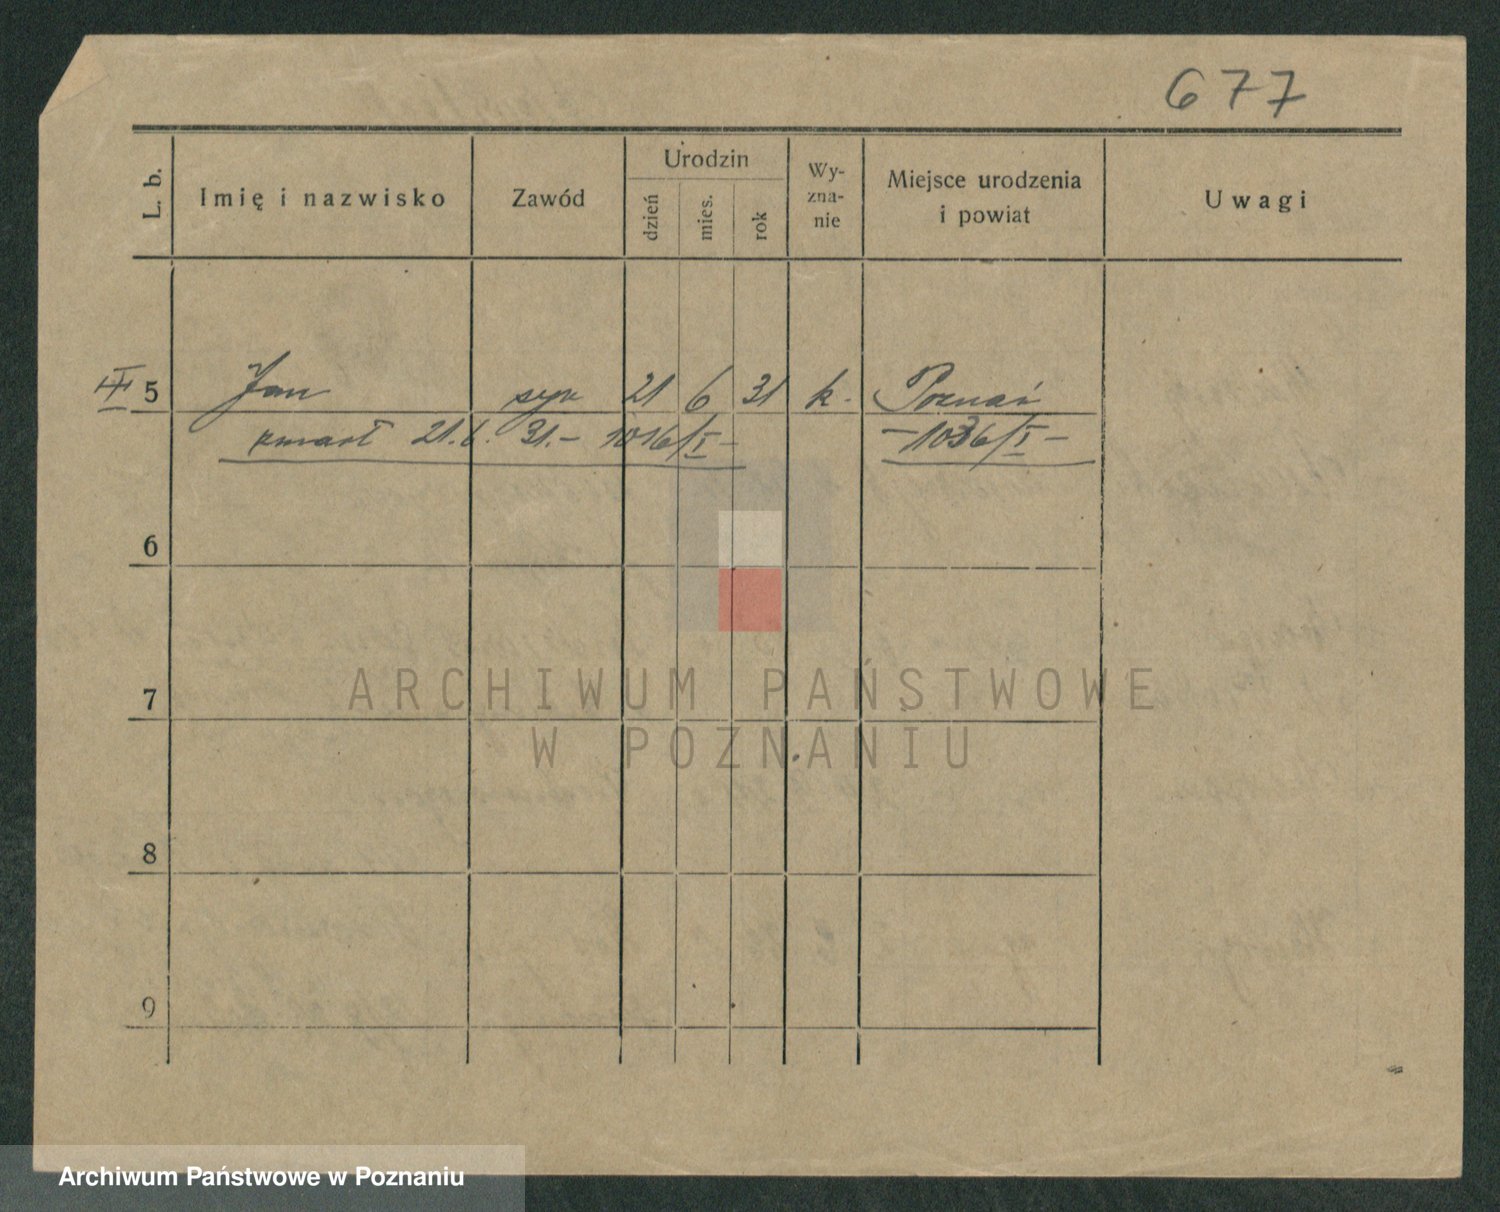 677
L. b.
Imię i nazwisko
Zawód
Urodzin
dzień
mies.
rok
Wy-
zna-
nie
Miejsce urodzenia
i powiat
Uwagi
III 5 Jan syn 21 6 31 k. Poznań
zmarł 21.6. 31.- 1016/I - -1036/I-
6
7
8
9
ARCHIWUM PAŃSTWOWE
W POZNANIU
Archiwum Państwowe w Poznaniu